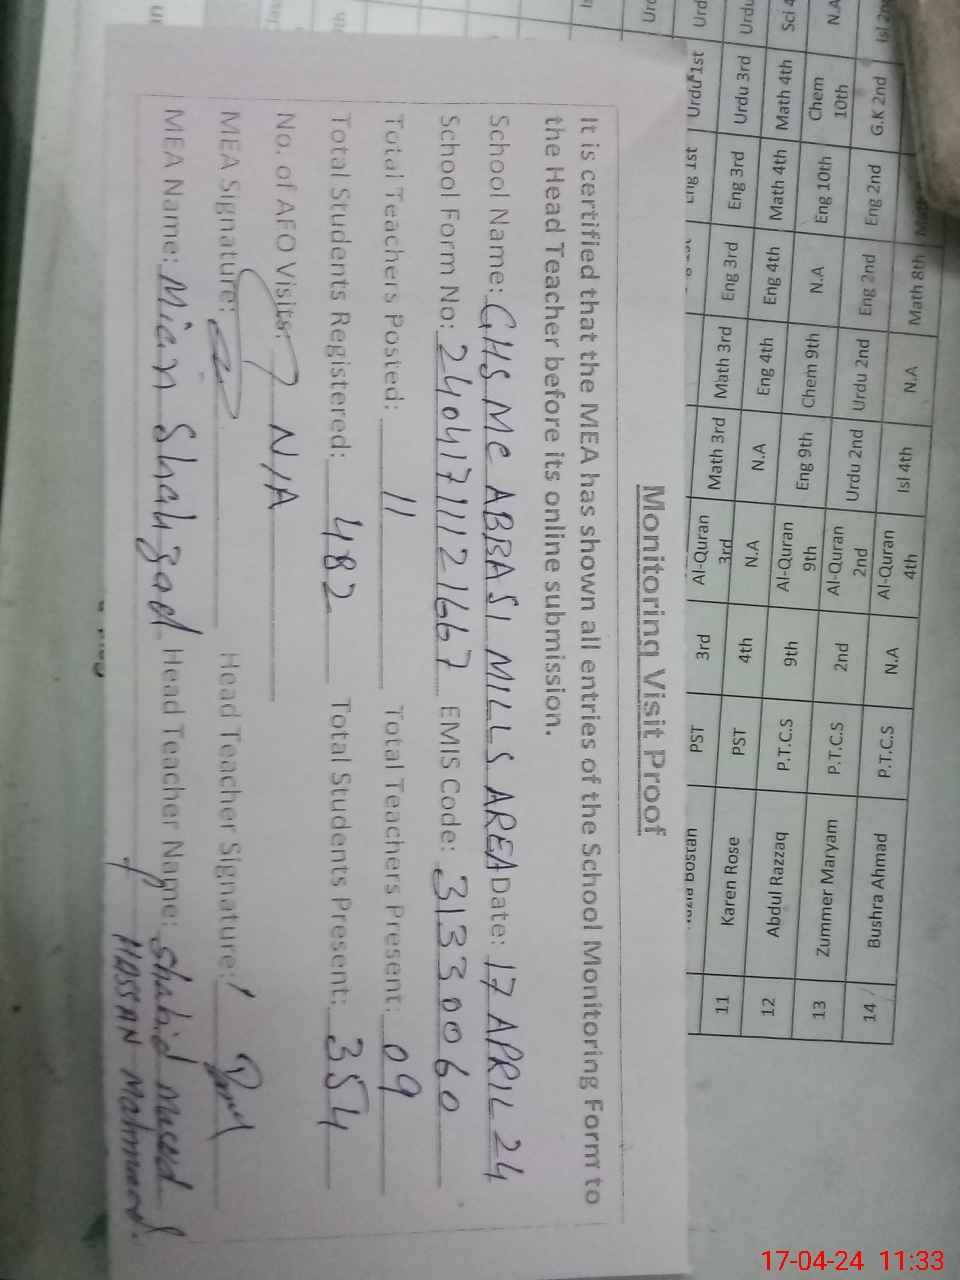 Monitoring Visit Proof
It is certified that the MEA has shown all entries of the School Monitoring Form to
the Head Teacher before its online submission.
School Name: GHS MC ABBASI MILLS AREA Date: 17 APRIL 24
School Form No: 24041711121667 EMIS Code: 31330060
Total Teachers Posted: 11 Total Teachers Present: 09
Total Students Registered: 482 Total Students Present: 354
No. of AFO Visits: N/A
MEA Signature: Head Teacher Signature:
MEA Name: Mian Shahzad Head Teacher Name: Shahid
HASSAN Mahmood.
Bostan PST 3rd Al-Quran 3rd Math 3rd Urdu 1st
11 Karen Rose PST 4th N.A N.A Math 3rd Eng 3rd Eng 3rd Urdu 3rd
12 Abdul Razzaq P.T.C.S 9th Al-Quran 9th Eng 9th Eng 4th Eng 4th Math 4th Math 4th
13 Zummer Maryam P.T.C.S 2nd Al-Quran 2nd Urdu 2nd Chem 9th N.A Eng 10th Chem 10th N.A
14 Bushra Ahmad P.T.C.S N.A Al-Quran 4th Isl 4th Urdu 2nd Eng 2nd Eng 2nd G.K 2nd
N.A Math 8th
17-04-24 11:33